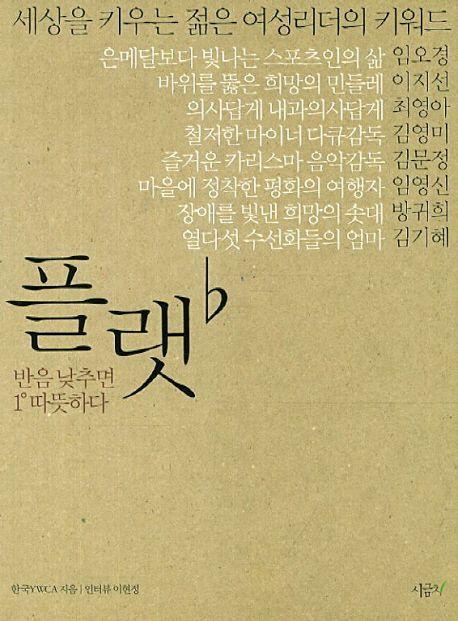 세상을 키우는 젊은 여성리더의 키워드
은메달보다 빛나는 스포츠인의 삶 임오경
바위를 뚫은 희망의 민들레 이지선
의사답게 내과의사답게 최영아
철저한 마이너 다큐감독 김영미
즐거운 카리스마 음악감독 김문정
마을에 정착한 평화의 여행자 임영신
장애를 빛낸 희망의 솟대 방귀희
열다섯 수선화들의 엄마 김기혜
플랫♭
반음 낮추면
1°따뜻하다
한국YWCA 지음 | 인터뷰 이현정
시금치